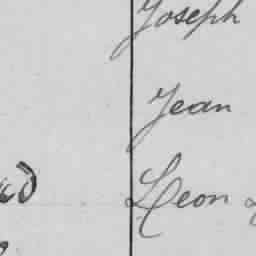 Joseph
Jean
Leon